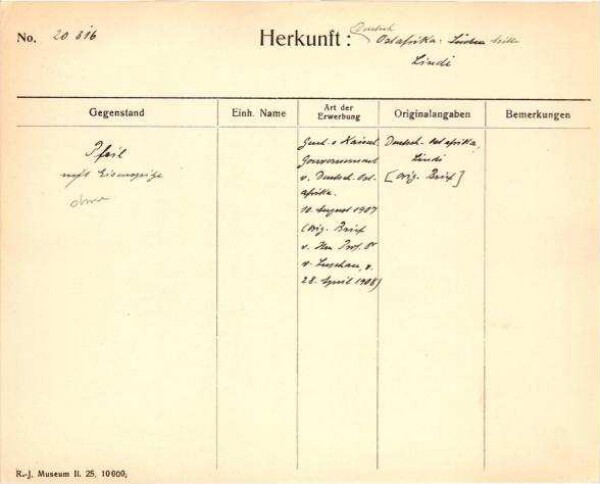 No. 20 816
Herkunft: Deutsch
Ostafrika. Küste
Lindi
Gegenstand
Einh. Name
Art der Erwerbung
Originalangaben
Bemerkungen
Pfeil
mit Eisenspitze
ohne
Gesch. v. Kaiserl.
Gouvernement
v. Deutsch-Ost-
afrika.
10. August 1907
(Orig. Brief
v. Hrn Prof. Dr
v. Luschan, v.
28. April 1908)
Deutsch-Ostafrika,
Lindi
[Orig. Brief]
R.-J. Museum II. 25. 10000.